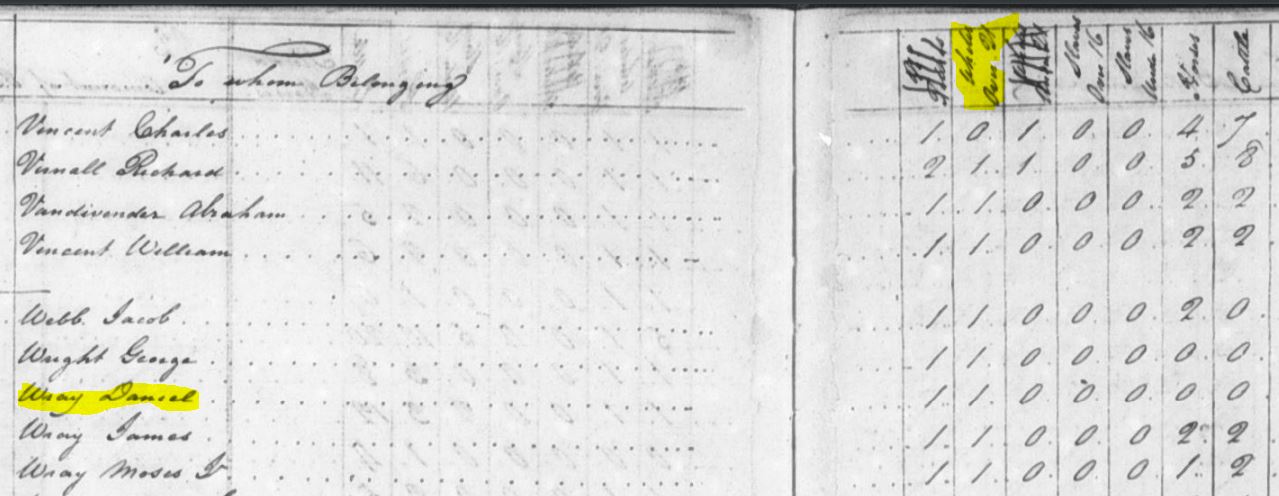 To whom Belonging
Whites Over 21
Slaves Over 16
Slaves Under 16
Horses
Cattle
Vincent Charles 1 0 1 0 0 4 7
Richard 2 1 1 0 0 5 8
Vandivender Abraham 1 1 0 0 0 2 2
Vincent William 1 1 0 0 0 2 2
Webb Jacob 1 1 0 0 0 2 0
Wright George 1 1 0 0 0 0 0
Wray Daniel 1 1 0 0 0 0 0
Wray James 1 1 0 0 0 2 2
Wray Moses Jr 1 1 0 0 0 1 2